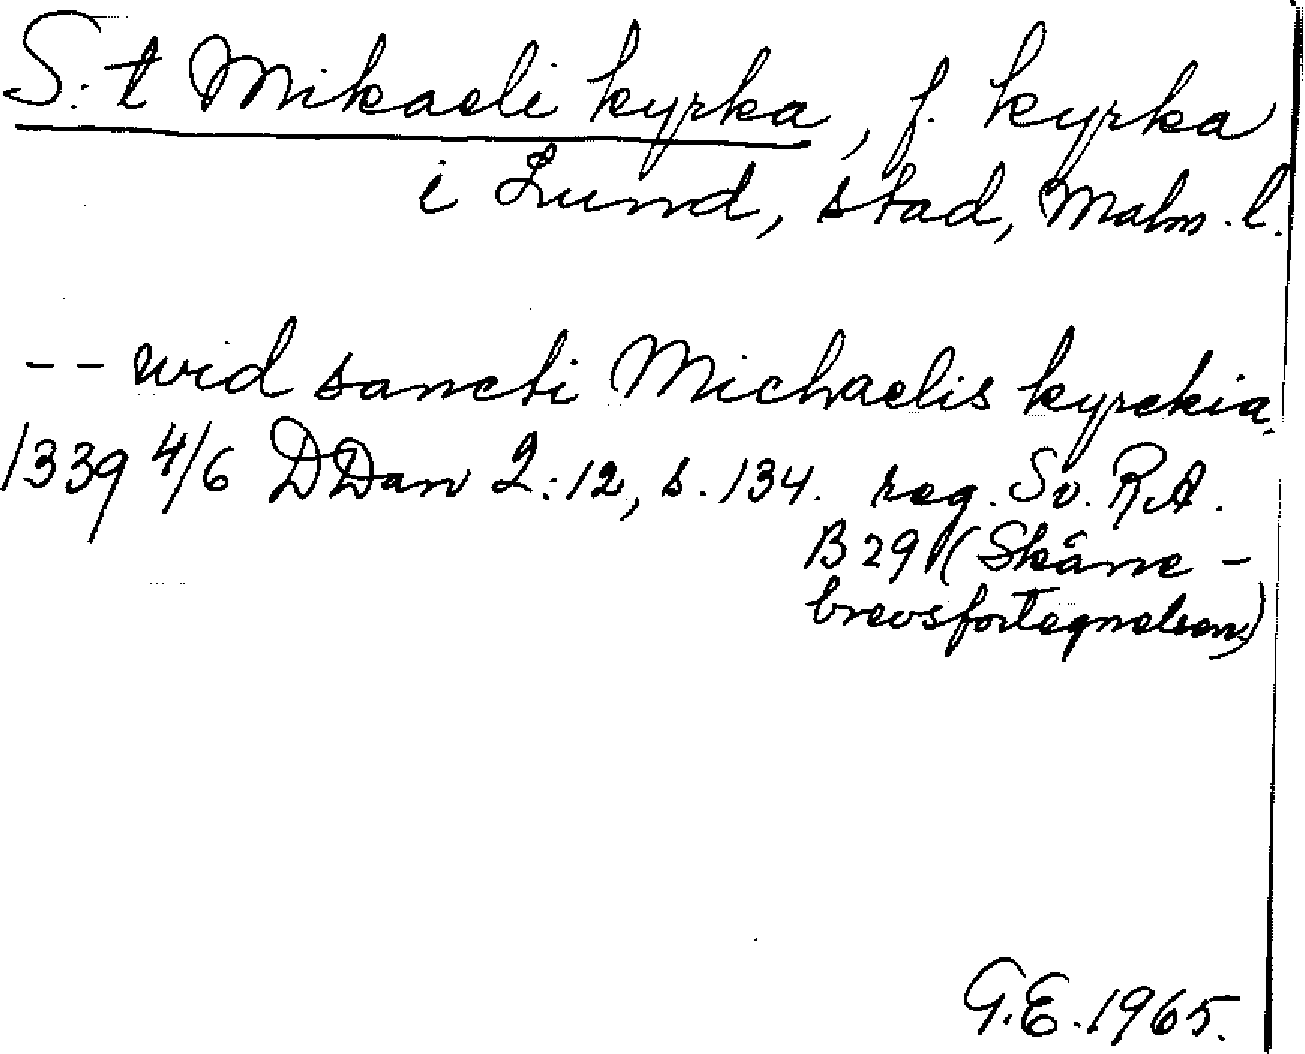 S:t Mikaeli kyrka, f. kyrka
i Lund, stad, Malm. l.
-- wid sancti Michaelis kyrckia,
1339 4/6 DDan 2:12, s. 134. reg. Sv. RA.
B29 (Skåne-
brevsfortegnelsen)
G.E. 1965.